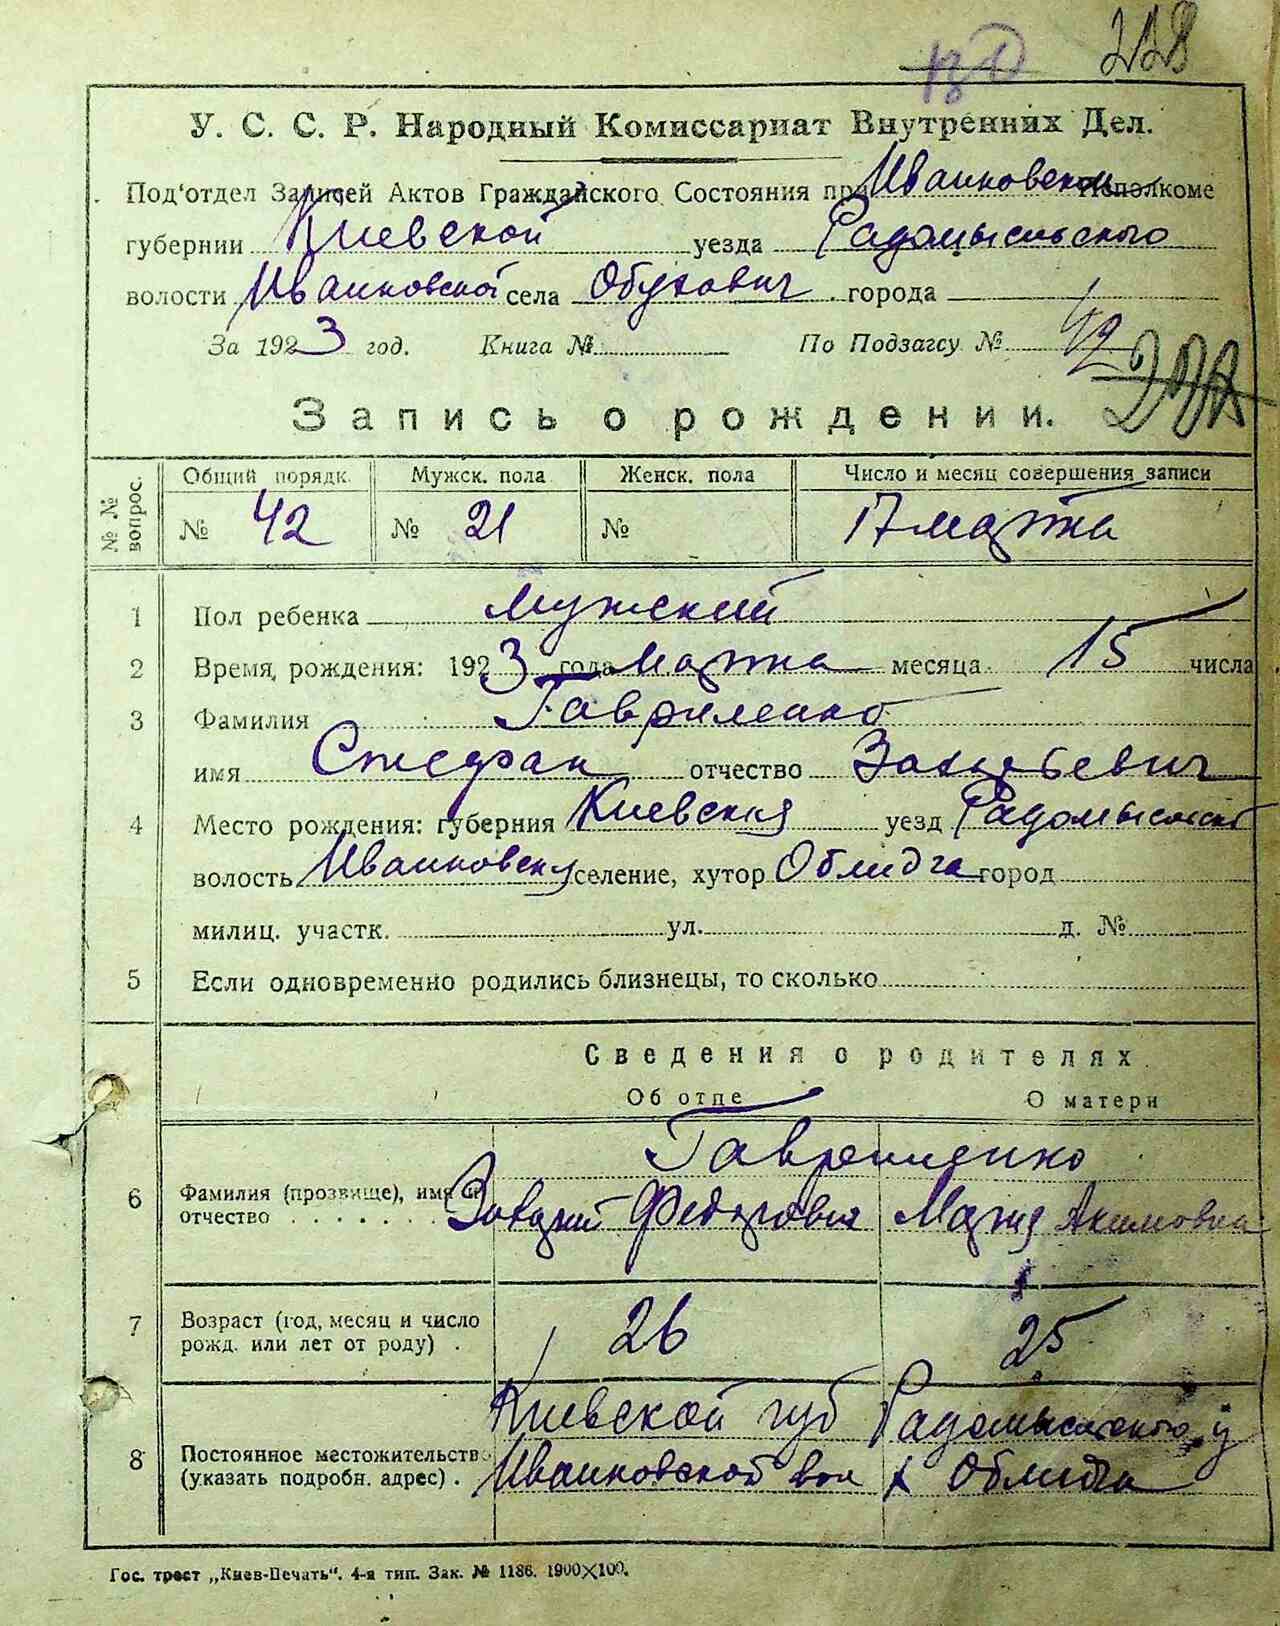 228
У. С. С. Р. Народный Комиссариат Внутренних Дел.
Под'отдел Записей Актов Гражданского Состояния при Иванковском Исполкоме
губернии Киевской уезда Радомысльского
волости Иванковской села Обухович города
За 1923 год. Книга № По Подзагсу № 42
Запись о рождении.
№ № вопрос.
Общий порядк. Мужск. пола Женск. пола Число и месяц совершения записи
№ 42 № 21 № 17 марта
1 Пол ребенка мужский
2 Время рождения: 1923 года марта месяца 15 числа
3 Фамилия Гавриленко
имя Стефан отчество
4 Место рождения: губерния Киевская уезд Радомысльский
волость Иванковская селение, хутор Облидча город
милиц. участк. ул. д. №
5 Если одновременно родились близнецы, то сколько
Сведения о родителях
Об отце О матери
Гавриленко
6 Фамилия (прозвище), имя и
отчество . . . . . . . Федорович Мария Акимовна
7 Возраст (год, месяц и число
рожд. или лет от роду) . 26 25
Киевской губ Радомысльского у
8 Постоянное местожительств
(указать подробн. адрес) . Иванковской вол х Облидча
Гос. трест „Киев-Печать“. 4-я тип. Зак. № 1186. 1900×100.